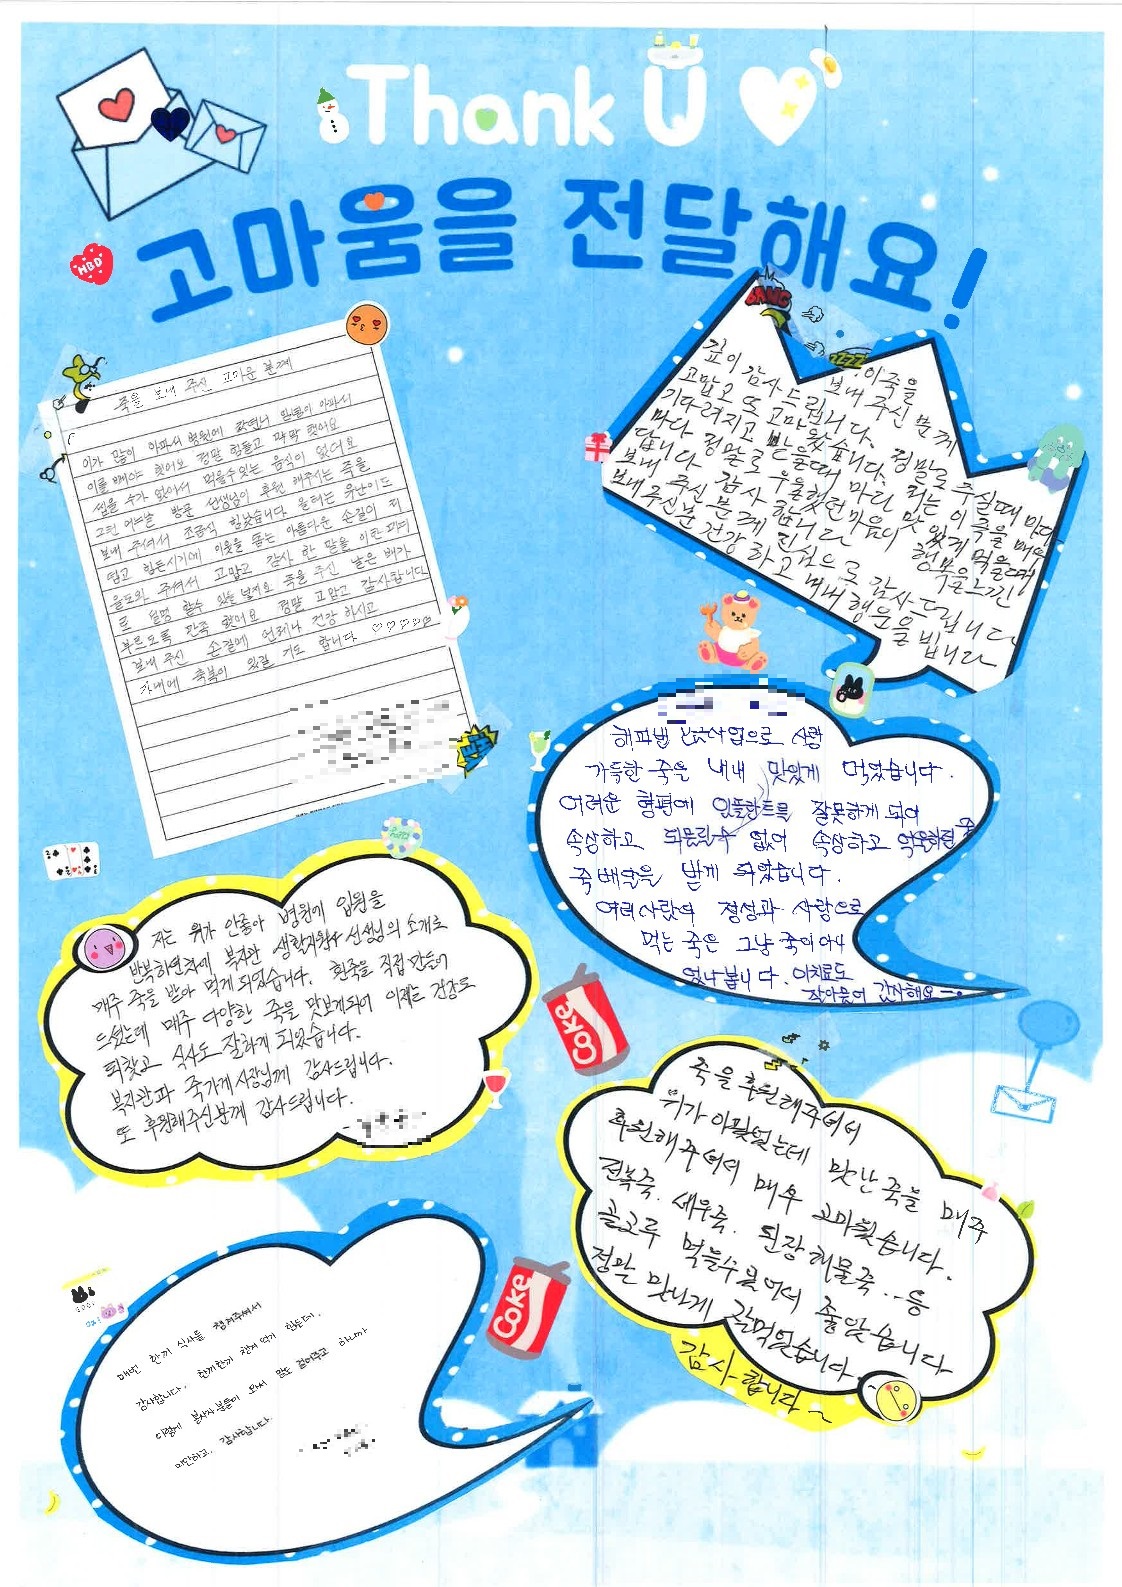 Thank U
고마움을 전달해요!
HBD
죽을 보내 주신 고마운 분께
이가 많이 아파서 병원에 갔더니 잇몸이 아파서
이를 빼야 했어요 정말 힘들고 막막 했어요
씹을 수가 없어서 먹을수있는 음식이 없더요
그런 어느날 방문 선생님이 후원 해주시는 죽을
보내 주셔서 조금씩 힘났습니다 올해는 유난이도
덥고 힘든시기에 이웃을 품는 아름다운 손길이 저
을도와 주셔서 고맙고 감사 한 말을 이란
로 설명 할수 있을 넓지요 죽을 주신 날은 배가
부르도록 만족 했어요 정말 고맙고 감사합니다
보내 주신 손길에 언제나 건강 하시고
가내에 축복이 있길 기도 합니다 ♡♡♡♡♡
BANG
ZZZZ
이죽을
보내 주신 분께
깊이 감사드립니다.
고맙고 또 고마웠습니다. 정말로 주실때 마다
기다려지고 받을때 마다 저는 이 죽을 매우
마다 정말로 우울했던마음이 맛있게 먹을때
답니다 감사 합니다 행복을느낀
보내 주신 분께 진심으로 감사드립니다
보내주신분 건강 하고 내내 행운을 빕니다
해피빈 사업으로 사랑
가득한 죽은 내내 맛있게 먹었습니다.
어려운 형편에 임플란트를 잘못하게 되어
속상하고 되돌릴수 없어 속상하고
죽배달을 받게 되었습니다.
여러사람의 정성과 사랑으로
먹는 죽은 그냥 죽이아니
였나봅니다. 이치료도
잘아물어 감사해요
저는 위가 안좋아 병원에 입원을
반복하던차에 복지관 생활지원사 선생님의 소개로
매주 죽을 받아 먹게 되었습니다. 흰죽을 직접 만들어
드셨는데 매주 다양한 죽을 맛보게되어 이제는 건강도
되찾고 식사도 잘하게 되었습니다.
복지관과 죽가게 사장님께 감사드립니다.
또 후원해주신분께 감사드립니다.
Coke
죽을 후원해주셔서
위가 아팠었는데 맛난 죽을 매주
후원해 주셔서 매우 고마웠습니다.
전복죽. 새우죽. 된장해물죽...등
골고루 먹을수 있어서 좋았습니다
정말 맛나게 잘먹었습니다
감사합니다~
Coke
매번 한끼 식사를 챙겨주셔서
감사합니다. 한끼한끼 챙겨먹기 힘든데,
이렇게 봉사자분들이 와서 말도 걸어주고 하니까
미안하고.. 감사합니다.